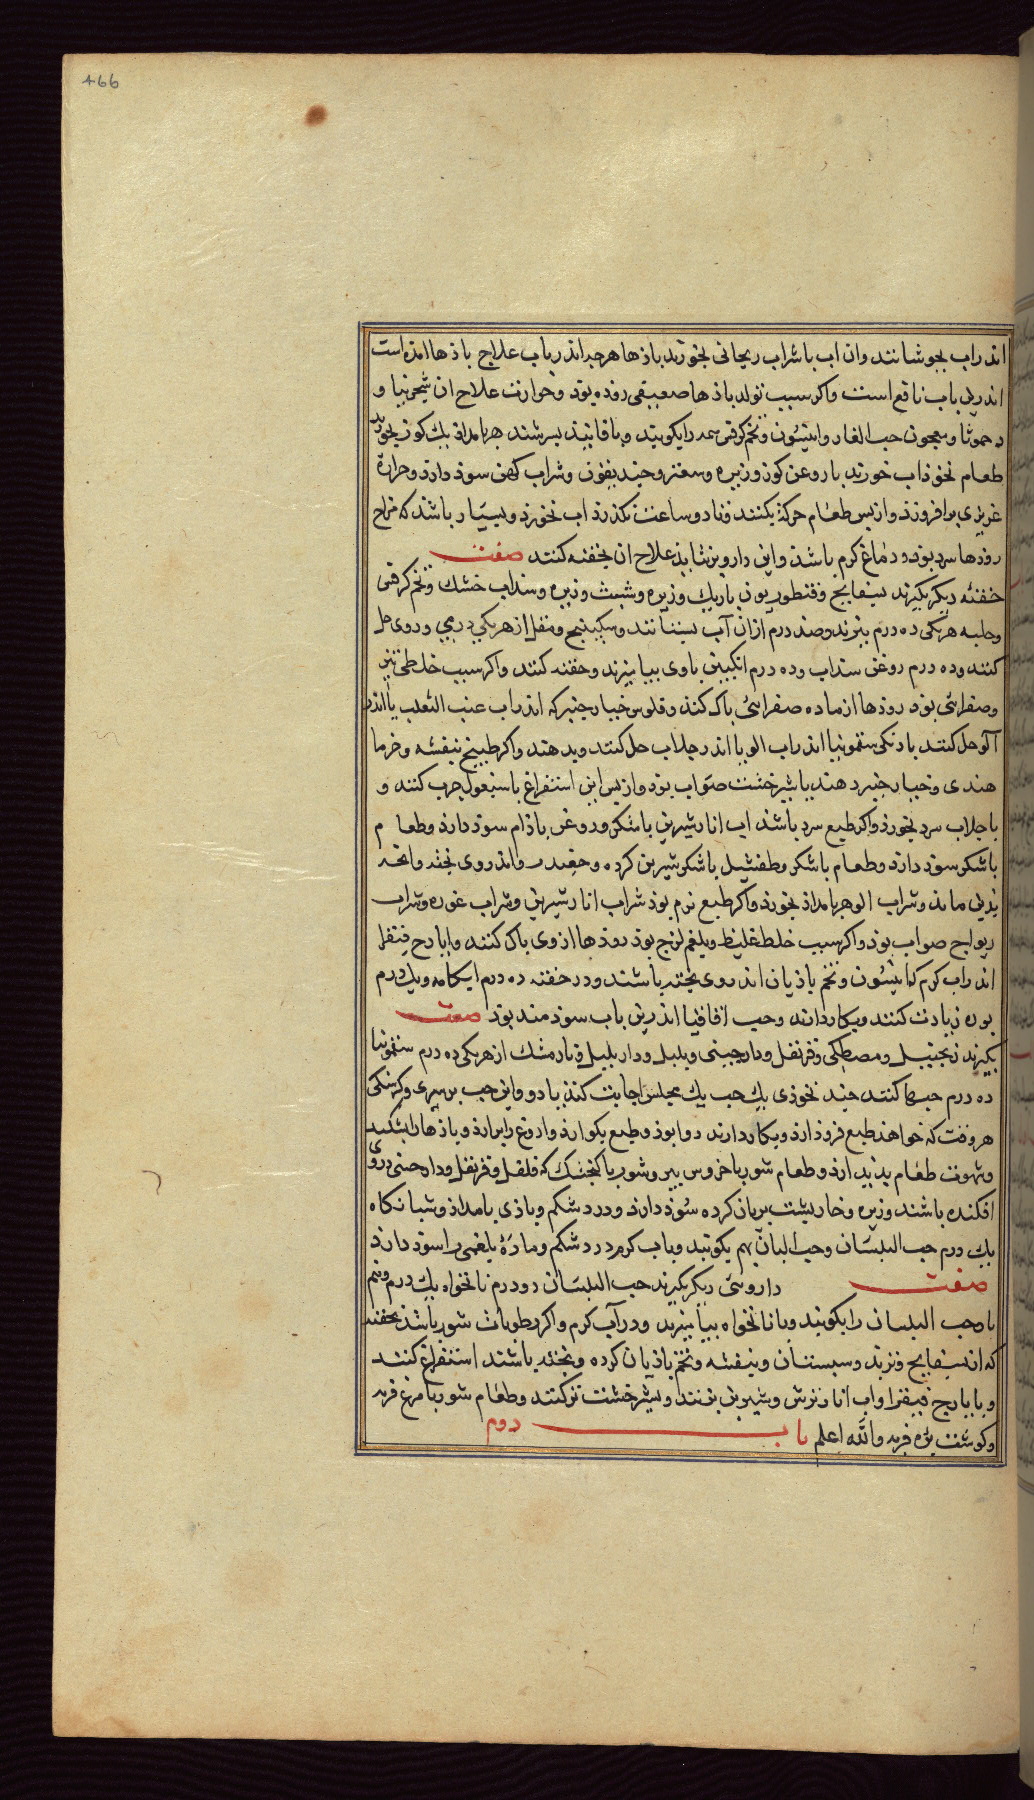 466
اندر اب بجوشانند وان اب باشراب ریحانی بخورند باذها هرچه اندر باب علاج باذها امذه است
اندرین باب نافع است واکر سبب تولد باذها ضعیفی روذه بوذ وحرارت علاج ان شجرنیا و
دحمرثا ومعجون حب الغار وانیسون وتخم کرفس همه را بکوبند وبا فانیذ بسرشند هر بامداذ یك کوز بخورند
طعام نخوذاب خورند با روغن کوز وزیره وسعتر وجندبیفون وشراب کهن سوذ دارذ وحرارة
غریزی برافروزذ وازپس طعام حرکة نکنند وتا دو ساعت نکذرذ اب نخورذ وبسیار باشذ که مزاج
روذها سرد بوذ ودماغ کرم باشذ واین دارو برنتابذ علاج ان بحقنه کنند صفت
حقنه دیکر بکیرند بسفایج وقنطوریون باریك وزیره وشبت وزیره وسنداب خشك وتخم کرفس
وحلبه هریکی ده درم بپزند وصذ درم ازان آب بستانند وسکبینج ومقل ازهریکی درمی دروی حل
کنند وده درم روغن سنداب وده درم انکبین باوی بیامیزند وحقنه کنند واکر سبب خلطی تیز
وصفرائی بوذ روذها ازماده صفرائی پاك کنند وفلوس خیارجنبر که اندر اب عنب الثعلب یا اندر اب
آلو حل کنند با دنکی سقمونیا اندر اب الو یا اندر جلاب حل کنند وبدهند واکر طبیخ بنفشه وخرما
هندی وخیارجنبر دهند یا شیرخشت صواب بوذ وازپس این استفراغ باسبغول چرب کنند و
باجلاب سرد بخورذ واکر طبع سرد باشذ اب انار شیرین باشکر وروغن باذام سوذ دارذ وطعام
باشکر سوذ دارذ وطعام باشکر وطفشیل باشکر شیرین کرده وجغندر واندر وی پخته وانچه
بذین ماند وشراب الو هر بامداذ بخورذ واکر طبع نرم بوذ شراب انار شیرین وشراب غوره وشراب
ریواج صواب بوذ واکر سبب خلط غلیظ وبلغم لزج بوذ روذها ازوی پاك کنند وایارج فیقرا
اندر اب کرم که انیسون وتخم باذیان اندر وی پخته باشند ودر حقنه ده درم ابکامه ویك درم
بوره زیادت کنند وبکار دارند وحب افاقیا اندرین باب سوذمند بوذ صفت
بکیرند زنجبیل ومصطکی وقرنفل ودارچینی وبلبل ودار بلبل ونارمشك ازهریکی ده درم سقمونیا
ده درم حبها کنند چند نخوذی یك حب یك مجلس اجابت کند یا دو واین حب بر سیری وکرسنکی
هروقت که خواهند طبع فروذ ارذ وبکار دارند دوا بوذ وطبع بکوارذ واروغ برارذ وباذها را بشکند
وشهوت طعام پدید ارذ وطعام شوربا خروس پیر وشوربا کنجشك که فلفل وقرنفل ودارچینی دروی
افکنده باشند وزیره وخارپشت بریان کرده سوذ دارذ ودرد شکم وباذی بامداذ وشبانکاه
یك درم حب البلسان وحب البان بهم بکوبند وباب کرم درد شکم ومادۀ بلغمی را سوذ دارذ
صفت داروئی دیکر بکیرند حب البلسان دو درم نانخواه یك درم ونیم
با حب البلسان را بکوبند وبا نانخواه بیامیزند ودر آب کرم واکر رطوبات شور باشذ بحقنه
که از بسفایج وتربذ وسبستان وبنفشه وتخم باذیان کرده وپخته باشند استفراغ کنند
وبایارج فیقرا واب انار ترش وشیرین بزنند وشیرخشت تر کنند وطعام شوربا مرغ فربه
وکوشت بره فربه والله اعلم باب دوم